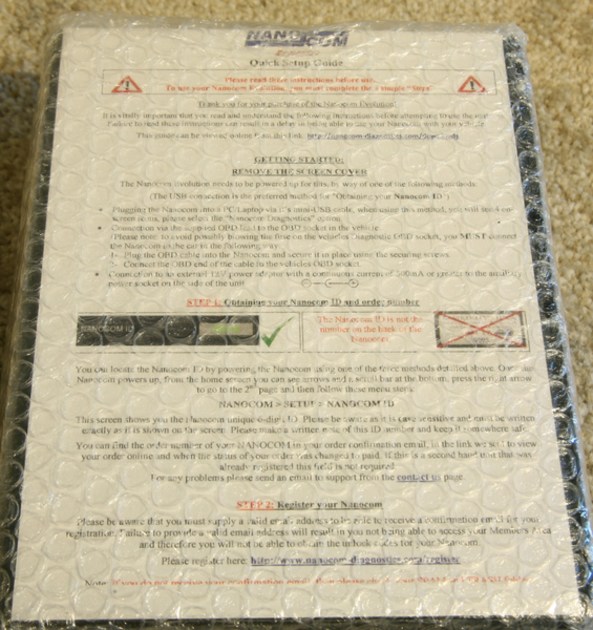 NANOCOM
Evolution
Quick Setup Guide
Please read these instructions before use.
To use your Nanocom Evolution, you must complete the 4 simple steps
Thank you for your purchase of the Nanocom Evolution.
It is vitally important that you read and understand the following instructions before attempting to use the unit.
Failure to read these instructions can result in a delay in being able to use your Nanocom with your vehicle.
This guide can be viewed online from this link:
GETTING STARTED:
REMOVE THE SCREEN COVER
The Nanocom Evolution needs to be powered up for this, by way of one of the following methods
(The USB connection is the preferred method for "Obtaining your Nanocom ID")
• Plugging the Nanocom into a PC/Laptop via it's mini-USB cable, when using this method, you will need
screen items, please select the "Nanocom Diagnostics" option.
• Connection via the supplied OBD lead to the OBD socket in the vehicle.
(Please note: to avoid possibly blowing the fuse on the vehicles Diagnostic OBD socket, you MUST connect
the Nanocom cable ear in the following way:
1- Plug the OBD cable into the Nanocom and secure it in place using the securing screws.
2- Connect the OBD end of the cable to the vehicles OBD socket.
• Connection to an external 12V power adaptor with a continuous current of 500mA or greater to the auxiliary
power socket on the side of the unit
STEP 1: Obtaining your Nanocom ID and order number
NANOCOM ID
The Nanocom ID is not the
number on the back of the
Nanocom.
You can locate the Nanocom ID by powering the Nanocom using one of the three methods detailed above. Once your
Nanocom powers up, from the home screen you can see arrows and a scroll bar at the bottom, press the right arrow
to go to the 2nd page and then follow these menu steps.
NANOCOM > SETUP > NANOCOM ID
This screen shows you the Nanocom unique 6-digit ID. Please be aware as it is case sensitive and must be written
exactly as it is shown on the screen. Please make a written note of this ID number and keep it somewhere safe.
You can find the order number of your NANOCOM in your order confirmation email, in the link we sent to view
your order online and when the status of your order was changed to paid. If this is a second hand unit that was
already registered this field is not required.
For any problems please send an email to support from the contact us page.
STEP 2: Register your Nanocom
Please be aware that you must supply a valid email address to be able to receive a confirmation email for your
registration. Failure to provide a valid email address will result in you not being able to access your Members Area
and therefore you will not be able to obtain the unlock codes for your Nanocom.
Please register here: http://www.nanocom-diagnostics.com/register
Note: If you do not receive your confirmation email, then please check your